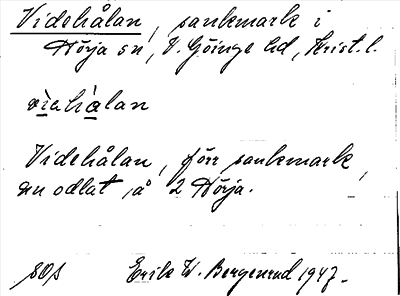 Videhålan, sankmark i
Hörja sn, V. Göinge hd, Krist. l.
Videhålan, förr sankmark,
nu odlat, å 2 Hörja.
Erik W. Bergenrud 1947.